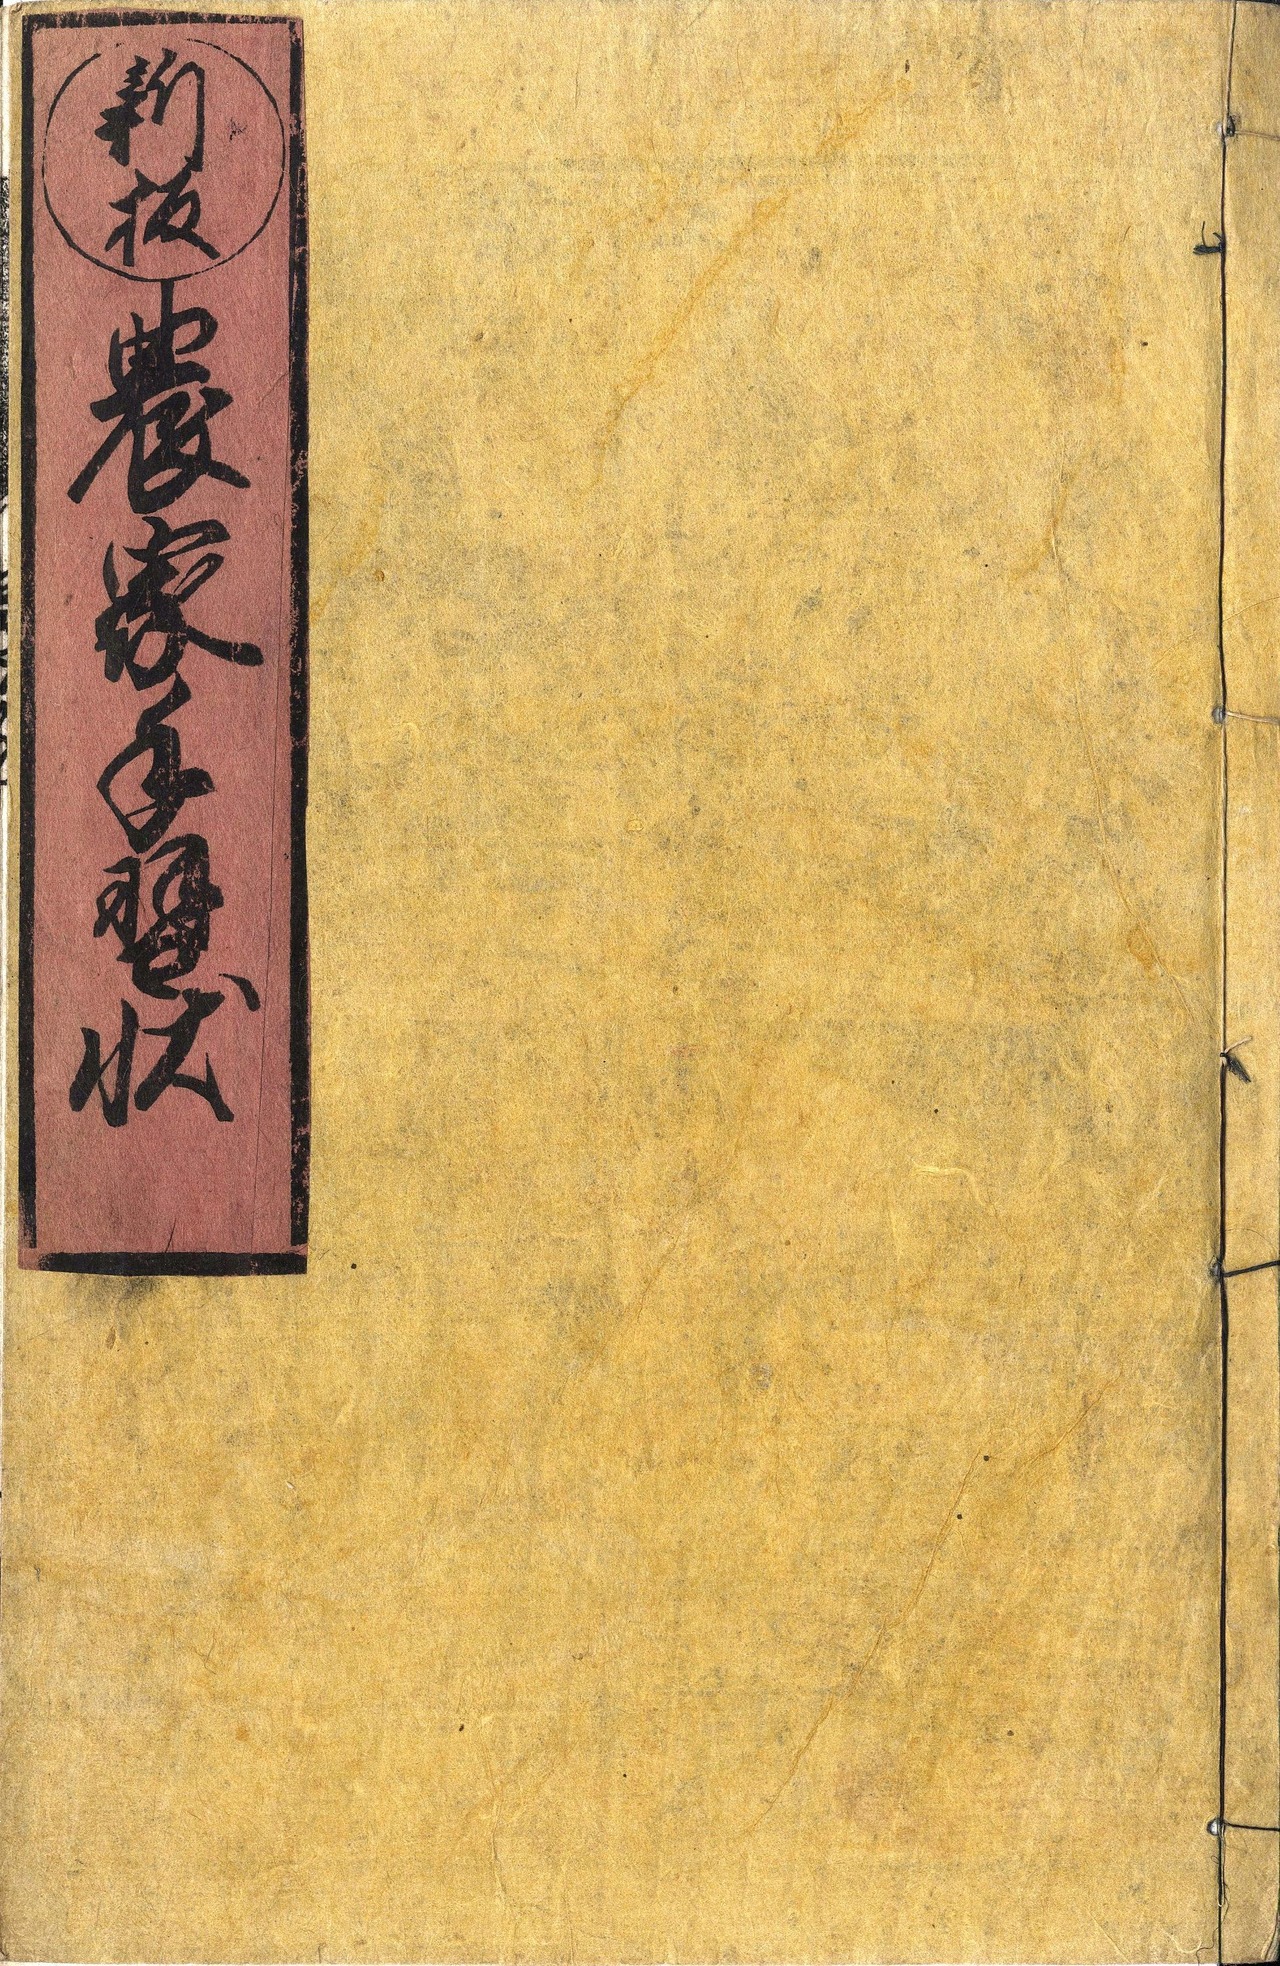 新板
農家手習状